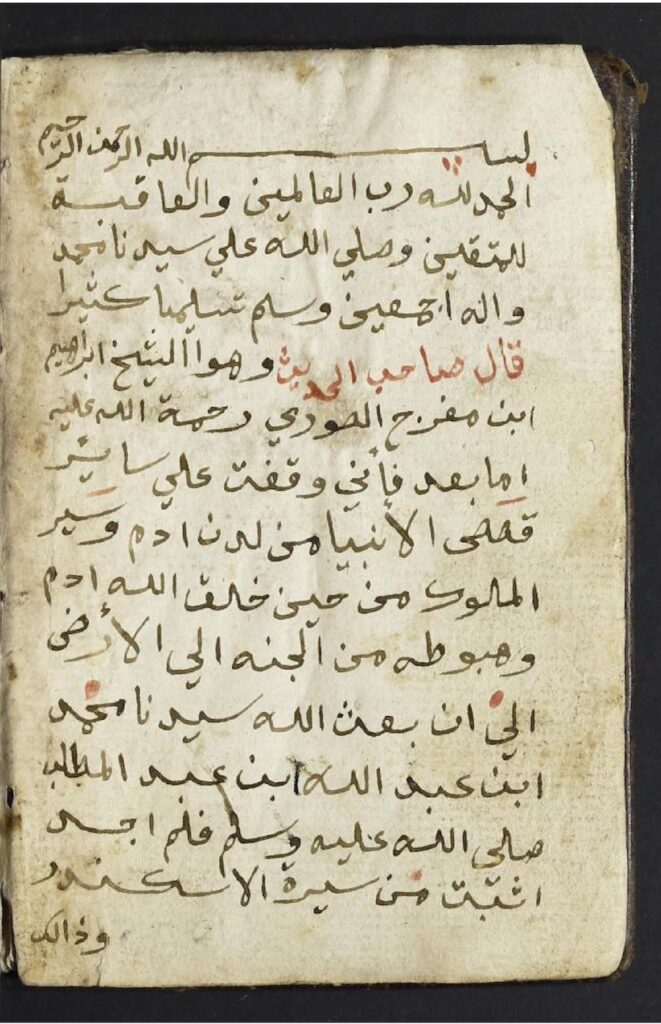 بسم الله الرحمن الرحيم
الحمد لله رب العالمين والعاقبة
للمتقين وصلي الله علي سيدنا محمد
واله اجمعين وسلم تسليما كثيرا
قال صاحب الحديث وهوا الشيخ ابراهيم
ابن مفرج الصوري رحمة الله عليه
اما بعد فأنني وقفت علي ساير
قصص الأنبيا من لدن ادم وسير
الملوك من حين خلق الله ادم
وهبوطه من الجنه الي الأرض
الي ان بعث الله سيدنا محمد
ابن عبد الله ابن عبد المطلب
صلي الله عليه وسلم فلم اجد
اثبت من سيرة الاسكندر
وذالك